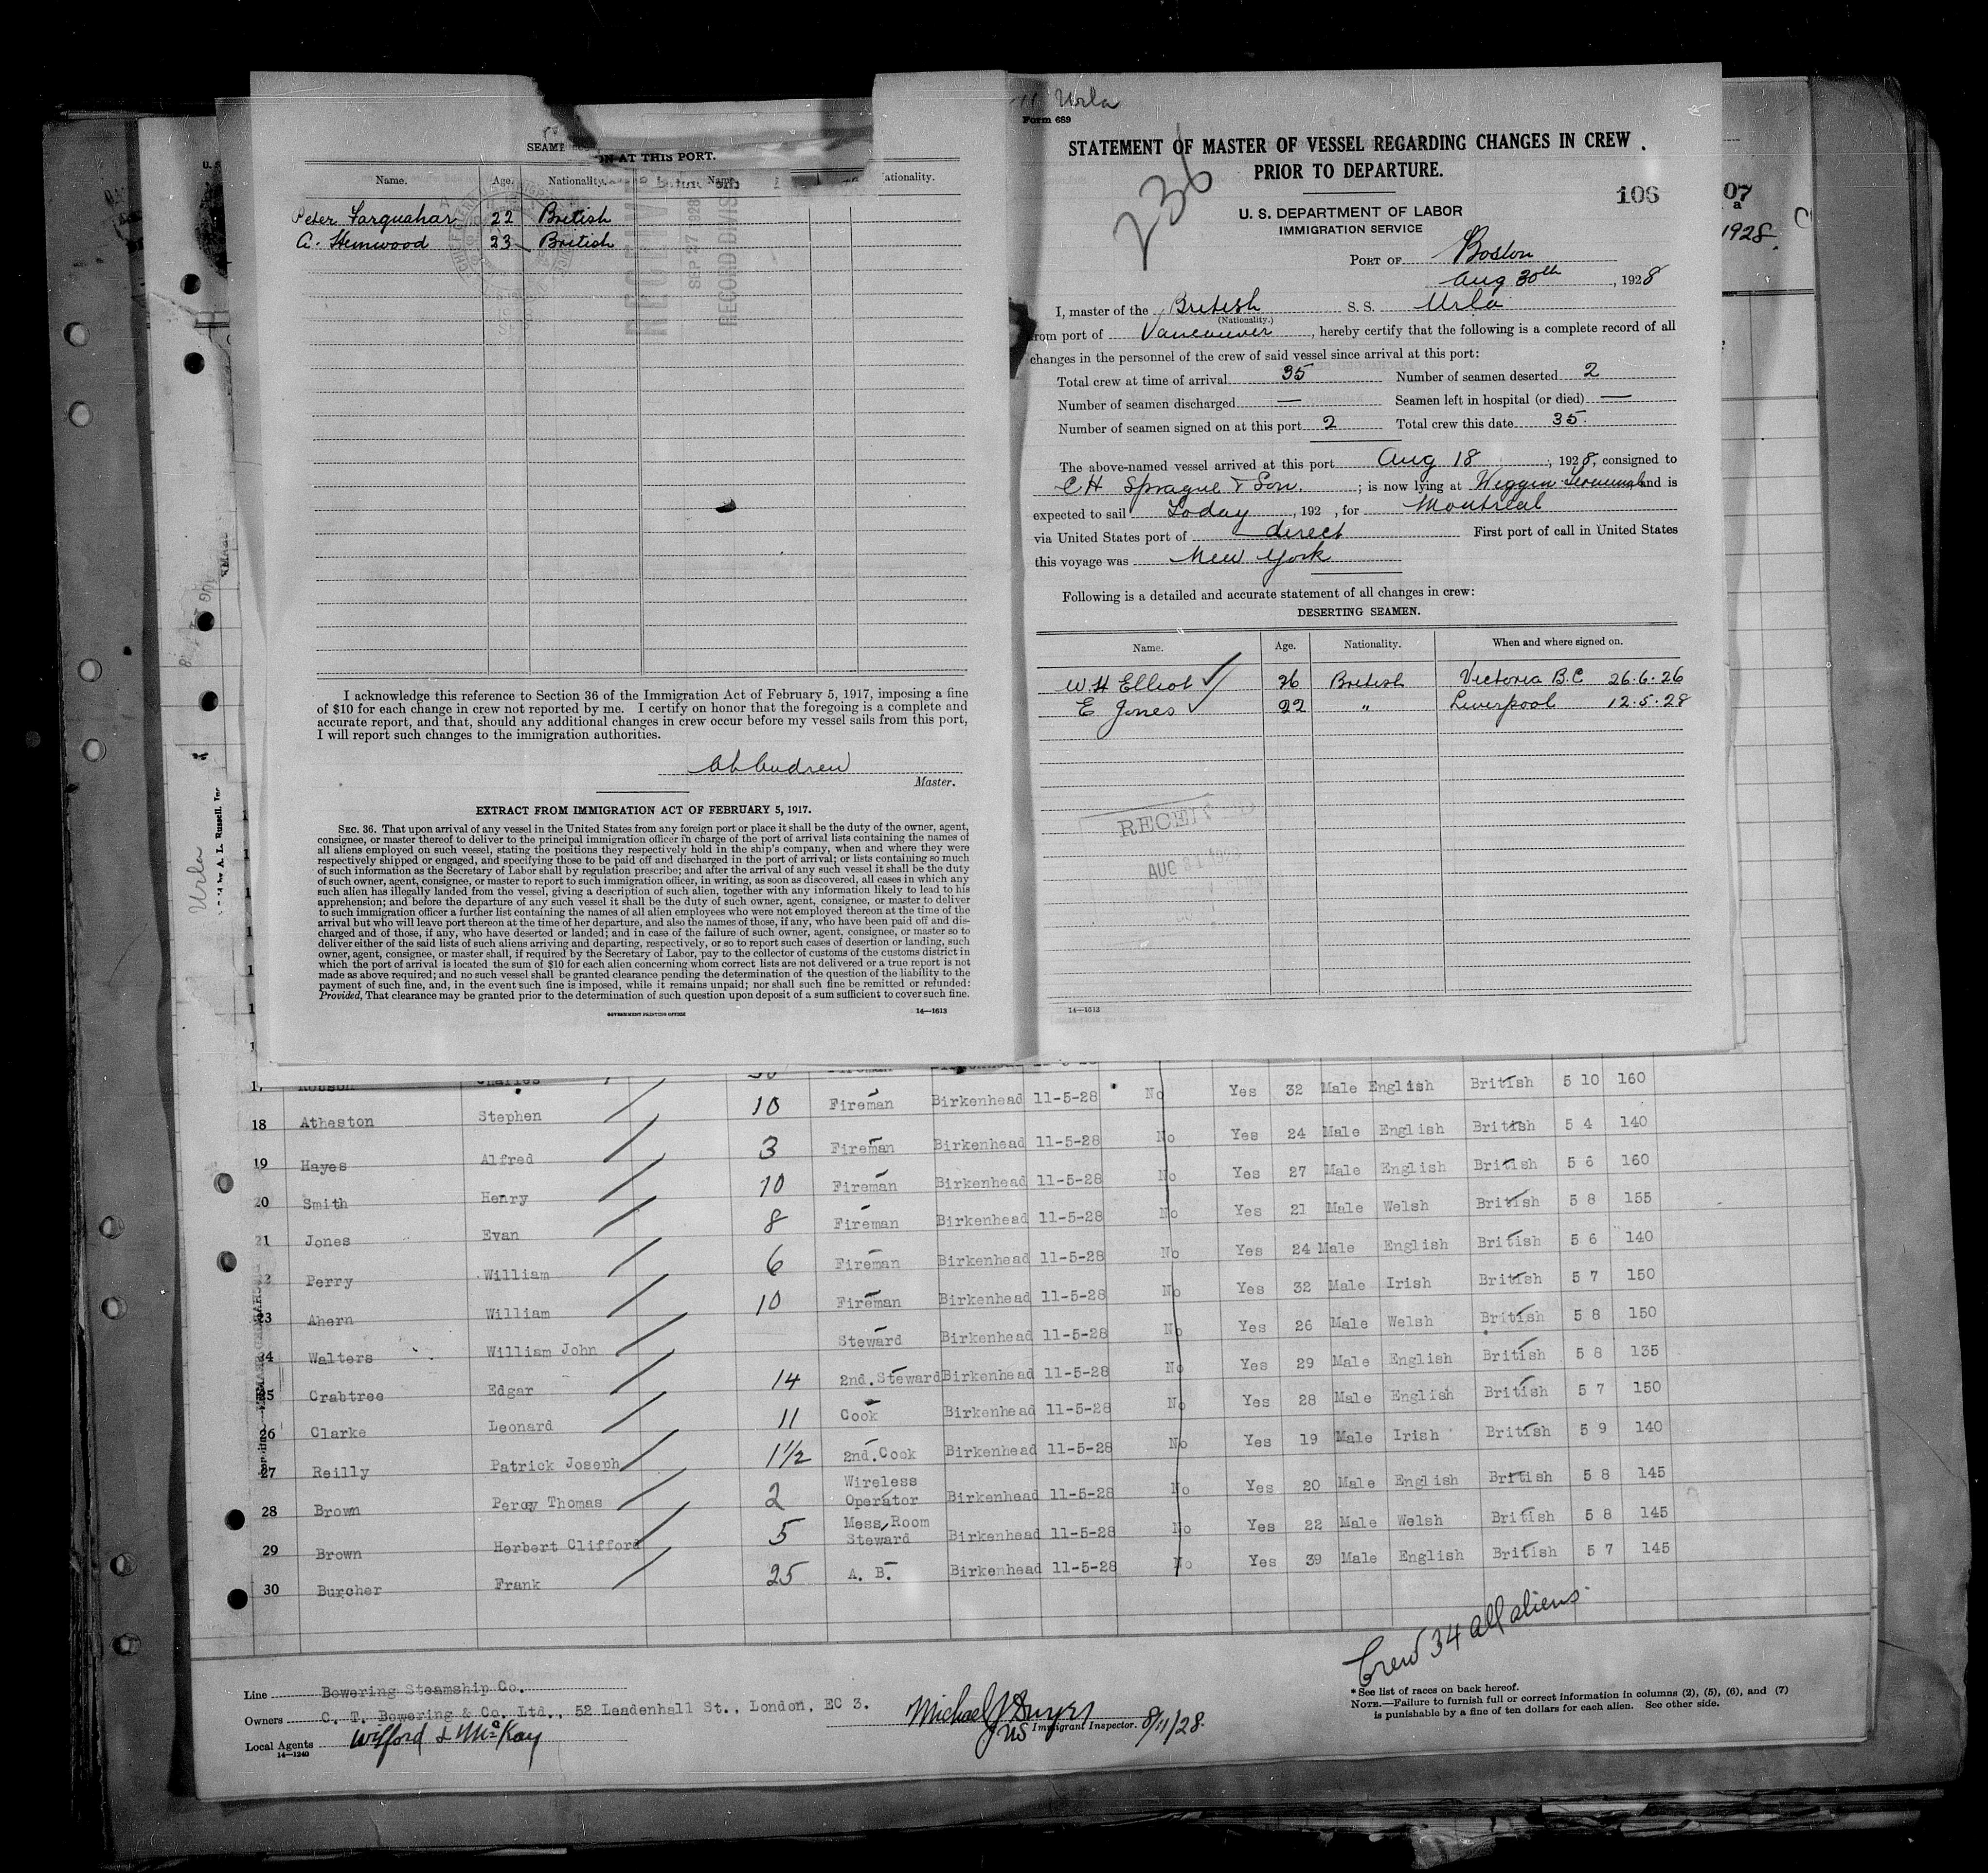 SEAME
ON AT THIS PORT.
Name. Age. Nationality. Name. ationality.
Peter Farquahar 22 British
A. Hemwood 23 British
SEP 27 1928
RECORD DIVIS
I acknowledge this reference to Section 36 of the Immigration Act of February 5, 1917, imposing a fine
of $10 for each change in crew not reported by me. I certify on honor that the foregoing is a complete and
accurate report, and that, should any additional changes in crew occur before my vessel sails from this port,
I will report such changes to the immigration authorities.
Master.
EXTRACT FROM IMMIGRATION ACT OF FEBRUARY 5, 1917.
SEC. 36. That upon arrival of any vessel in the United States from any foreign port or place it shall be the duty of the owner, agent,
consignee, or master thereof to deliver to the principal immigration officer in charge of the port of arrival lists containing the names of
all aliens employed on such vessel, stating the positions they respectively hold in the ship's company, when and where they were
respectively shipped or engaged, and specifying those to be paid off and discharged in the port of arrival; or lists containing so much
of such information as the Secretary of Labor shall by regulation prescribe; and after the arrival of any such vessel it shall be the duty
of such owner, agent, consignee, or master to report to such immigration officer, in writing, as soon as discovered, all cases in which any
such alien has illegally landed from the vessel, giving a description of such alien, together with any information likely to lead to his
apprehension; and before the departure of any such vessel it shall be the duty of such owner, agent, consignee, or master to deliver
to such immigration officer a further list containing the names of all alien employees who were not employed thereon at the time of the
arrival but who will leave port thereon at the time of her departure, and also the names of those, if any, who have been paid off and dis-
charged and of those, if any, who have deserted or landed; and in case of the failure of such owner, agent, consignee, or master so to
deliver either of the said lists of such aliens arriving and departing, respectively, or so to report such cases of desertion or landing, such
owner, agent, consignee, or master shall, if required by the Secretary of Labor, pay to the collector of customs of the customs district in
which the port of arrival is located the sum of $10 for each alien concerning whom correct lists are not delivered or a true report is not
made as above required; and no such vessel shall be granted clearance pending the determination of the question of the liability to the
payment of such fine, and, in the event such fine is imposed, while it remains unpaid; nor shall such fine be remitted or refunded:
Provided, That clearance may be granted prior to the determination of such question upon deposit of a sum sufficient to cover such fine.
GOVERNMENT PRINTING OFFICE 14—1613
Urla
Form 689
STATEMENT OF MASTER OF VESSEL REGARDING CHANGES IN CREW
PRIOR TO DEPARTURE.
236
106
U. S. DEPARTMENT OF LABOR
IMMIGRATION SERVICE
PORT OF Boston
Aug 30th, 1928
I, master of the British S. S. Urla
(Nationality.)
from port of Vancouver, hereby certify that the following is a complete record of all
changes in the personnel of the crew of said vessel since arrival at this port:
Total crew at time of arrival 35 Number of seamen deserted 2
Number of seamen discharged — Seamen left in hospital (or died) —
Number of seamen signed on at this port 2 Total crew this date 35.
The above-named vessel arrived at this port Aug 18, 1928, consigned to
C H Sprague & Son.; is now lying at Wiggin Terminal and is
expected to sail Today, 192 , for Montreal
via United States port of direct First port of call in United States
this voyage was New York
Following is a detailed and accurate statement of all changes in crew:
DESERTING SEAMEN.
Name. Age. Nationality. When and where signed on.
W. H Elliot ✓ 26 British Victoria B.C 26.6.26
E Jones ✓ 22 " Liverpool 12.5.28
RECEIVED
AUG 31 1928
14—1613
07
a
1928.
Urla
by A. L. Russell, Inc
17 Robson Charles 30 Fireman Yes 32 Male English British 5 10 160
18 Atheston Stephen 10 Fireman Birkenhead 11-5-28 No Yes 24 Male English British 5 4 140
19 Hayes Alfred 3 Fireman Birkenhead 11-5-28 No Yes 27 Male English British 5 6 160
20 Smith Henry 10 Fireman Birkenhead 11-5-28 No Yes 21 Male Welsh British 5 8 155
21 Jones Evan 8 Fireman Birkenhead 11-5-28 No Yes 24 Male English British 5 6 140
22 Perry William 6 Fireman Birkenhead 11-5-28 No Yes 32 Male Irish British 5 7 150
23 Ahern William 10 Fireman Birkenhead 11-5-28 No Yes 26 Male Welsh British 5 8 150
24 Walters William John Steward Birkenhead 11-5-28 No Yes 29 Male English British 5 8 135
25 Crabtree Edgar 14 2nd. Steward Birkenhead 11-5-28 No Yes 28 Male English British 5 7 150
26 Clarke Leonard 11 Cook Birkenhead 11-5-28 No Yes 19 Male Irish British 5 9 140
27 Reilly Patrick Joseph 1½ 2nd. Cook Birkenhead 11-5-28 No Yes 20 Male English British 5 8 145
28 Brown Percy Thomas 2 Wireless Operator Birkenhead 11-5-28 No Yes 22 Male Welsh British 5 8 145
29 Brown Herbert Clifford 5 Mess Room Steward Birkenhead 11-5-28 No Yes 39 Male English British 5 7 145
30 Burcher Frank 25 A. B. Birkenhead 11-5-28 No
Crew 34 all aliens
Line Bowering Steamship Co.
Owners C. T. Bowering & Co. Ltd., 52 Leadenhall St., London, EC 3.
Local Agents Wilford & McKay
14—1240
Michael J Dwyer
US Immigrant Inspector. 8/11/28.
* See list of races on back hereof.
NOTE.—Failure to furnish full or correct information in columns (2), (5), (6), and (7)
is punishable by a fine of ten dollars for each alien. See other side.